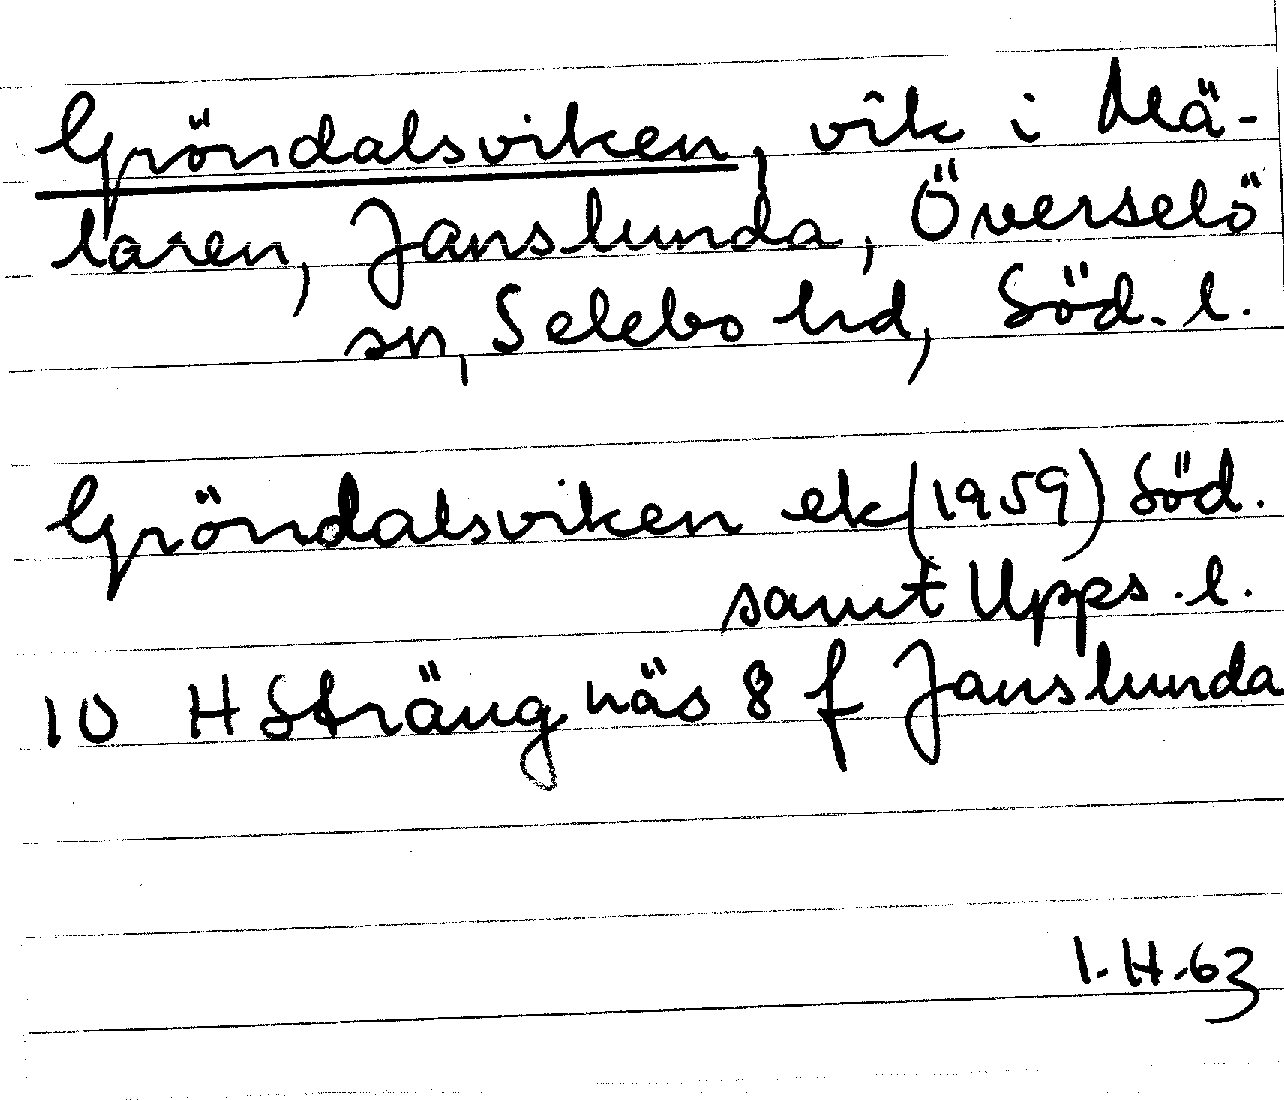 Gröndalsviken, vik i Mä-
laren, Janslunda, Överselö
sn, Selebo hd, Söd. l.
Gröndalsviken ek (1959) Söd.
samt Upps. l.
10 H Strängnäs 8 f Janslunda
I.H.63